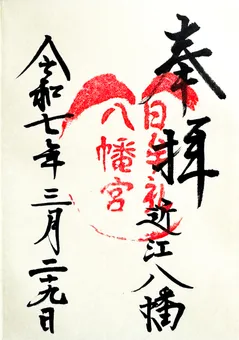 奉拝
近江八幡
日牟礼
八幡宮
令和七年三月二十九日